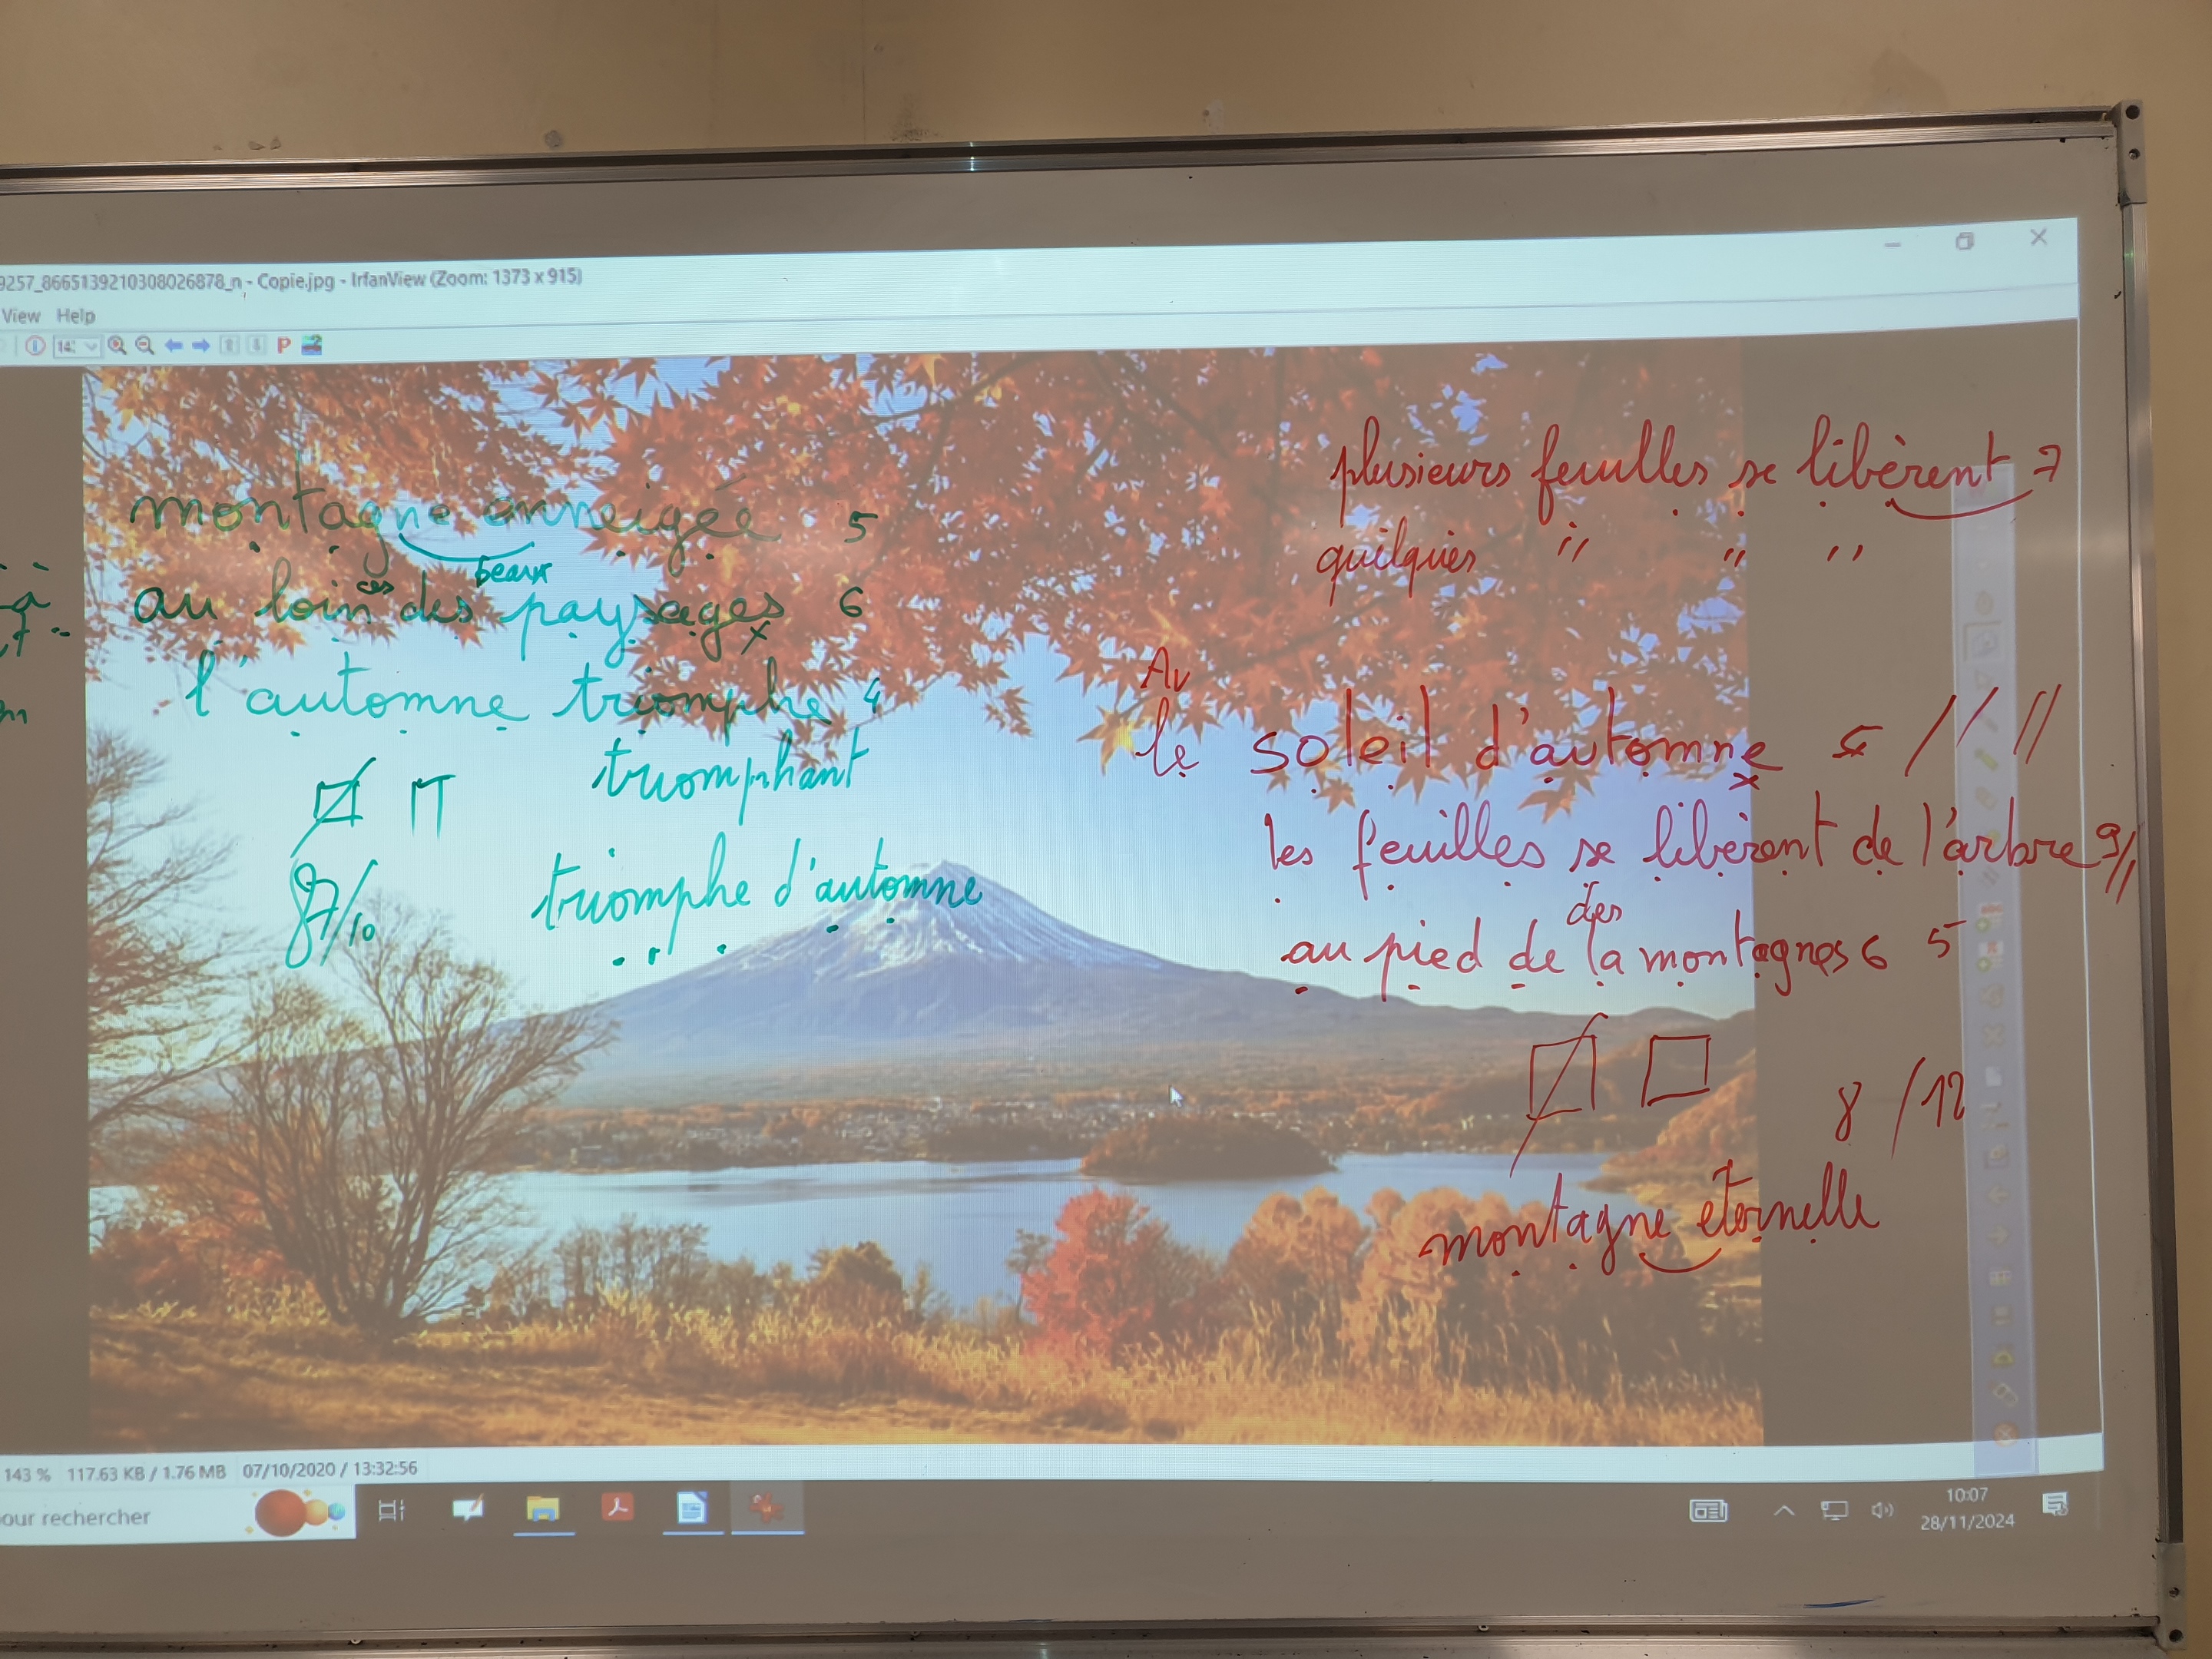 9257_8665139210308026878_n - Copie.jpg - IrfanView (Zoom: 1373 x 915)
View Help
montagne enneigée 5
ces beaux
au loin des paysages 6
l'automne triomphe 4
triomphant
87/10
triomphe d'automne
plusieurs feuilles se libèrent 7
quelques " " "
Au
le soleil d'automne 5 / / //
les feuilles se libèrent de l'arbre 9//
des
au pied de la montagnes 6 5
8 /12
montagne éternelle
143 % 117.63 KB / 1.76 MB 07/10/2020 / 13:32:56
our rechercher
10:07
28/11/2024